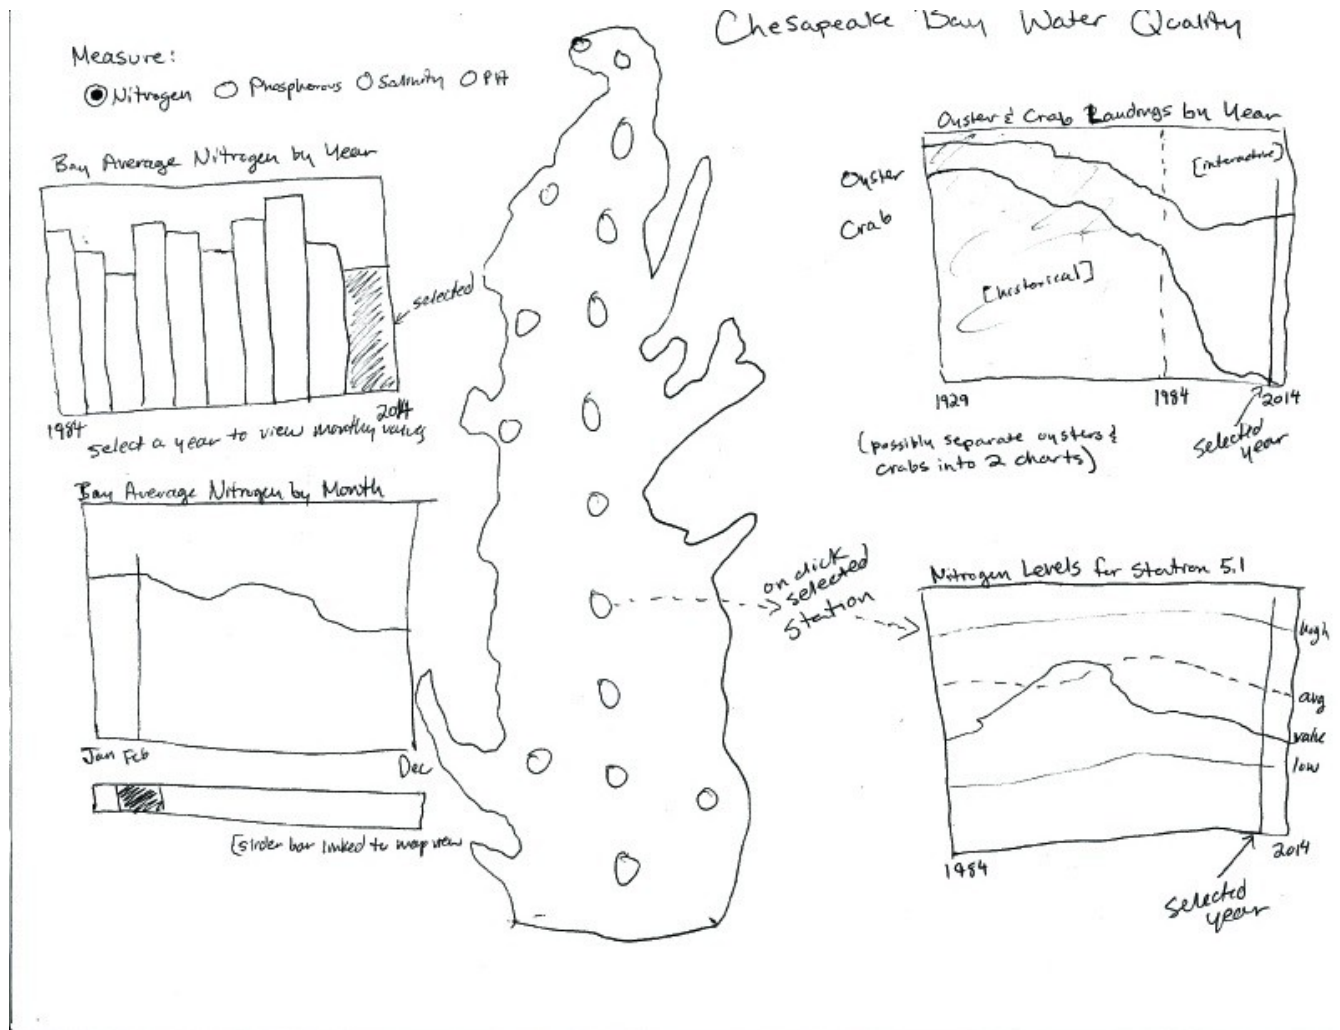 Chesapeake Bay Water Quality
Measure:
Nitrogen Phosphorous Salinity PH
Bay Average Nitrogen by Year
selected
1984
2014
select a year to view monthly values
Bay Average Nitrogen by Month
Jan Feb
Dec
[slider bar linked to map view
Oyster & Crab Landings by Year
Oyster
Crab
[interactive]
[historical]
1929
1984
2014
selected
year
(possibly separate oysters &
crabs into 2 charts)
on click
selected
station
Nitrogen Levels for Station 5.1
high
avg
value
low
1984
2014
selected
year